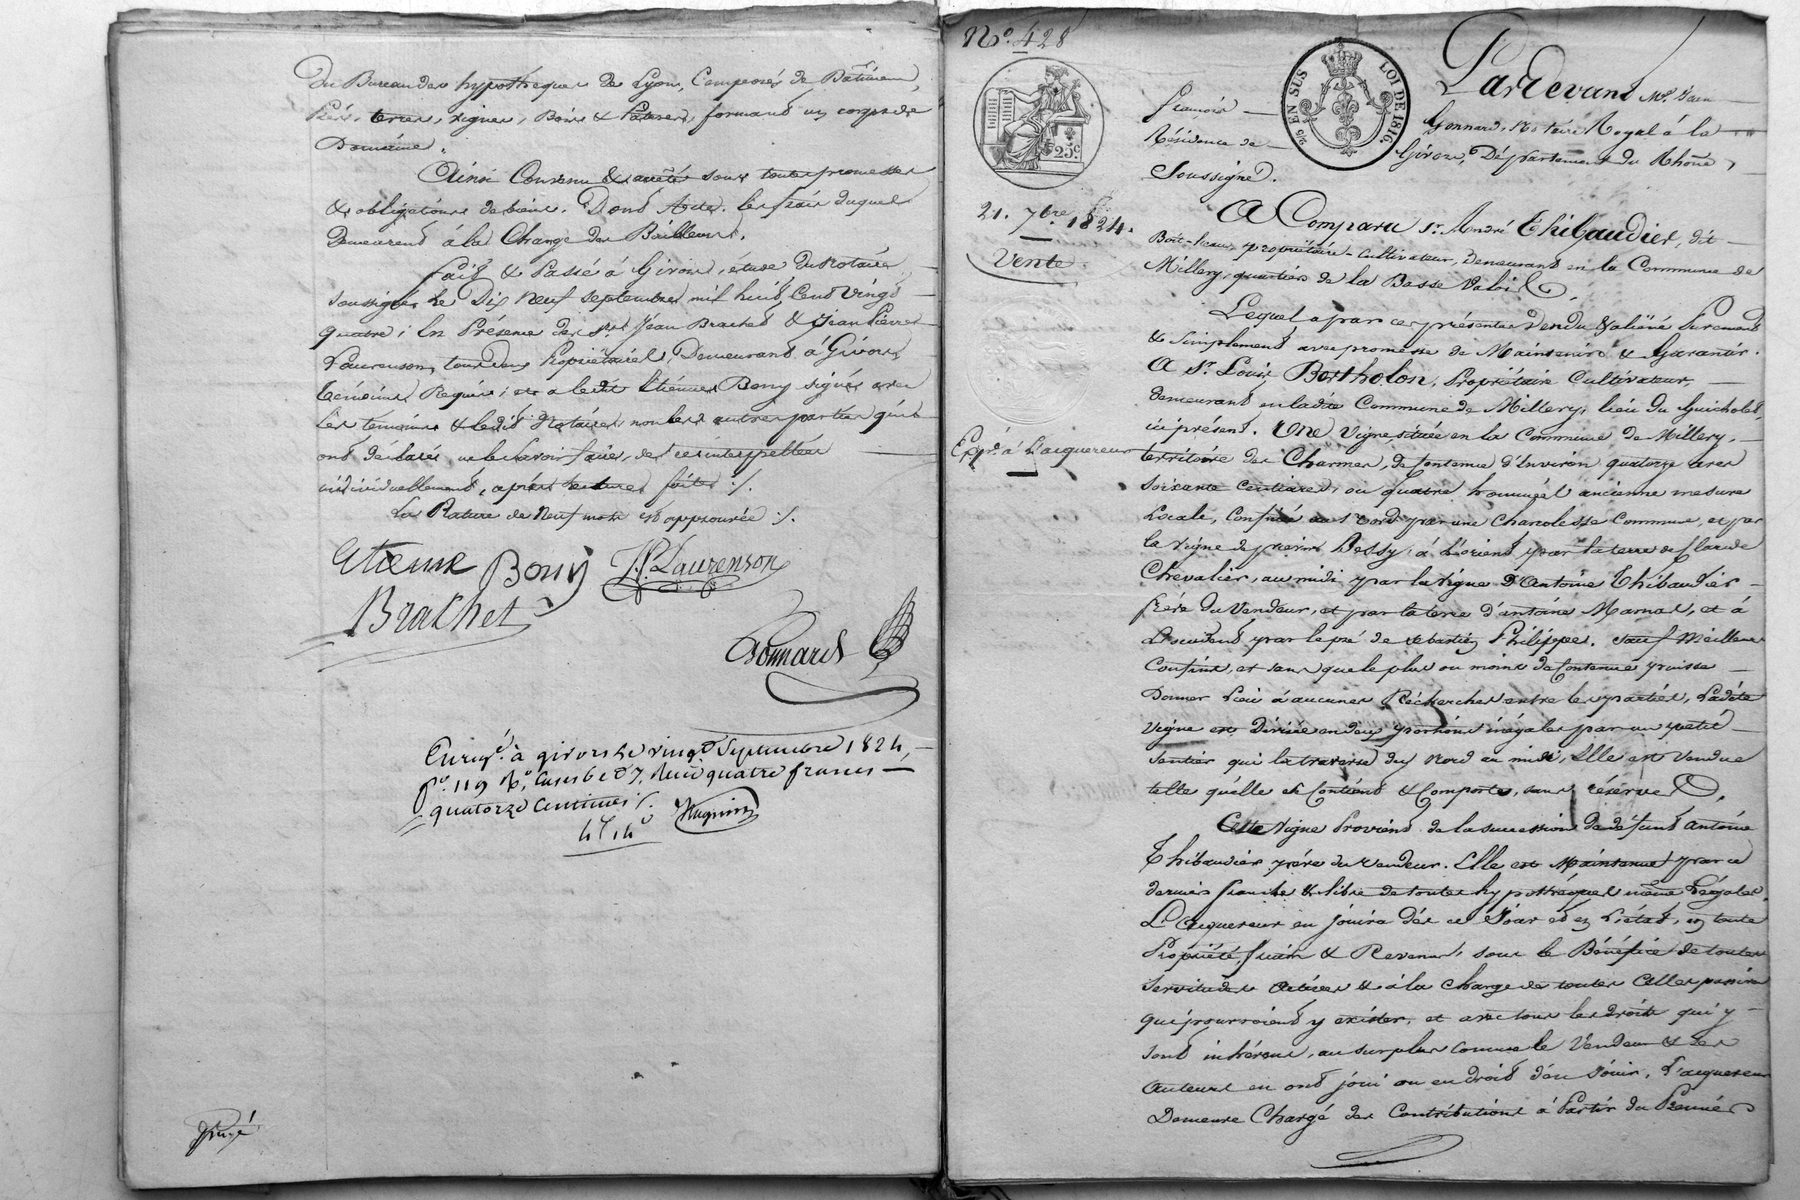 Du Bureau des hypotheques de Lyon, Composés de Bâtimens,
Prés, terres, vignes, Bois & Paturer, formant un corps de
Domaine.
Ainsi Convenu & arrêté sous toutes promesses
& obligations de biens. Dont Acte. les frais duquel
Demeurent à la Charge des Bailleurs.
fait & Passé à Givors, étude du Notaire
soussigné Le Dix Neuf septembre mil huit Cent Vingt
quatre; En Présence des srs. Jean Brachet & Jean Pierre
Laurenson, tous deux Propriétaires, Demeurant à Givors,
témoins Requis; et a ledit Etienne Bony signé avec
Les témoins & ledit Notaire, non les autres parties qui
ont déclaré ne le savoir faire, de ce interpellées
individuellement, après lecture faite ./.
La Rature de Neuf mots est approuvée ./.
Etienne Bony J. P. Laurenson
Brachet
Gonnard
Enregé. à givors le vingt Septembre 1824,
fo. 119 Ro. Cases 6 et 7. Reçu quatre francs
quatorze Centimes ./.
4f 14c
No. 428
Pardevant Me. Jean
françois Gonnard, Notaire Royal à la
Résidence de Givors, Département du Rhône,
Soussigné.
25c.
EN SUS
LOI DE 1816.
21. 7bre 1824.
Vente
Expé. à L'acquereur
A Comparu sr. André Thibaudier, dit
propriétaire-Cultivateur, demeurant en la Commune de
Millery, quartier de la Basse Valois.
Lequel a par ces présentes Vendu & aliéné Purement
& Simplement avec promesse de Maintenir & Garantir.
A Sr. Louis Bertholon, Propriétaire Cultivateur,
demeurant en ladite Commune de Millery, lieu du Guicholet,
ici présent. Une Vigne située en la Commune de Millery,
territoire des Charmes, de Contenue d'Environ quatorze ares
soixante centiares, ou quatre hommées ancienne mesure
Locale, Confiné au Nord par une Charolesse Commune, et par
la Vigne de pierre Bessy, à L'orient par la terre de Claude
Chevalier, au midi par la Vigne d'Antoine Thibaudier
frère du Vendeur, et par la terre d'antoine Marnas, et à
L'occident par le pré de sebastien Philippe. sauf Meilleurs
Confins, et sans que le plus ou moins de Contenue puisse
Donner Lieu à aucunes Recherches entre les parties, Ladite
Vigne est Divisée en deux portions inégales par un petit
Sentier qui la traverse du Nord au midi, Elle est Vendue
telle qu'elle se Contient & Comporte, sans réserve.
Cette Vigne Provient de la succession de défunt Antoine
Thibaudier père du Vendeur. Elle est Maintenue par ce
dernier franche & libre de toutes hypothéques même Légales.
L'Acquereur en jouira dès ce Jour en toute
Propriété, fruits & Revenus, sous le Bénéfice de toutes
Servitudes Actives & à la Charge de toutes Celles passives
qui pourroient y exister, et avec tous les droits qui y
sont inhérens, au surplus comme le Vendeur & ses
Auteurs en ont joui ou eu droit d'en Jouir, L'acquereur
Demeure Chargé des Contributions à Partir du Premier